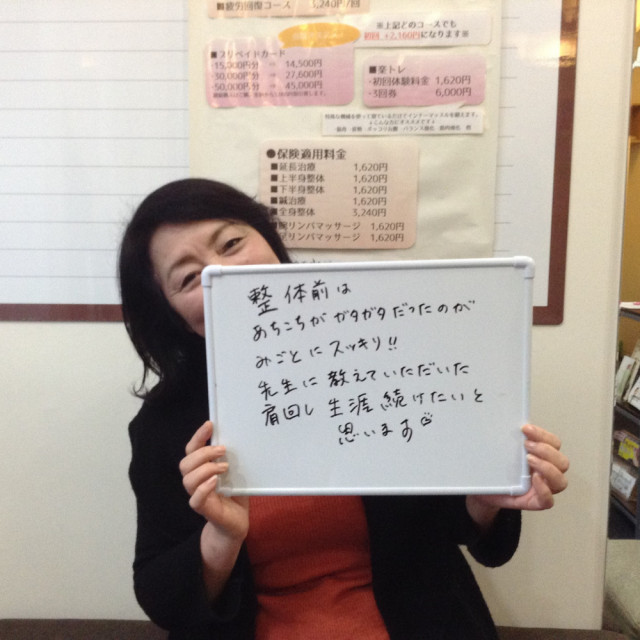 ■疲労回復コース 3,240円/回
※上記どのコースでも
初回 +2,160円になります※
■プリペイドカード
-15,000円分 ⇒ 14,500円
-30,000円分 ⇒ 27,600円
-50,000円分 ⇒ 45,000円
■楽トレ
-初回体験料金 1,620円
-3回券 6,000円
●保険適用料金
■延長治療 1,620円
■上半身整体 1,620円
■下半身整体 1,620円
■鍼治療 1,620円
■全身整体 3,240円
リンパマッサージ 1,620円
リンパマッサージ 1,620円
整体前は
あちこちが ガタガタだったのが
みごとに スッキリ!!
先生に 教えていただいた
肩回し 生涯 続けたいと
思います